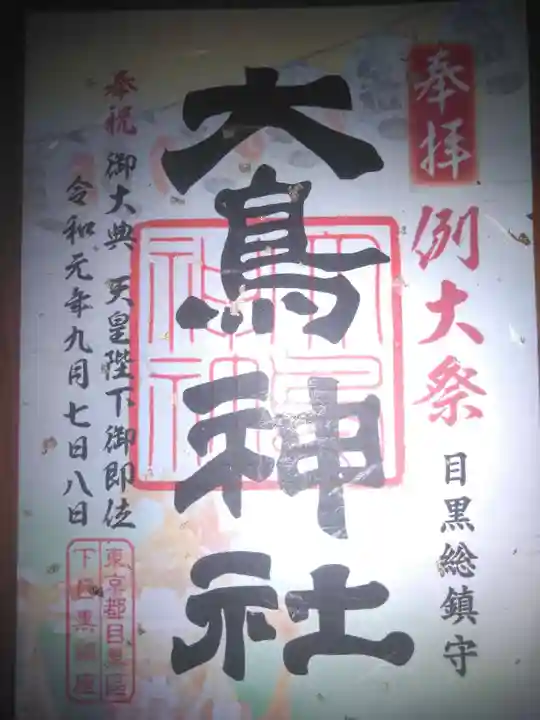 奉拝
例大祭
目黒総鎮守
大鳥神社
奉祝 御大典 天皇陛下御即位
令和元年九月七日八日
東京都目黒区
下目黒鎮座